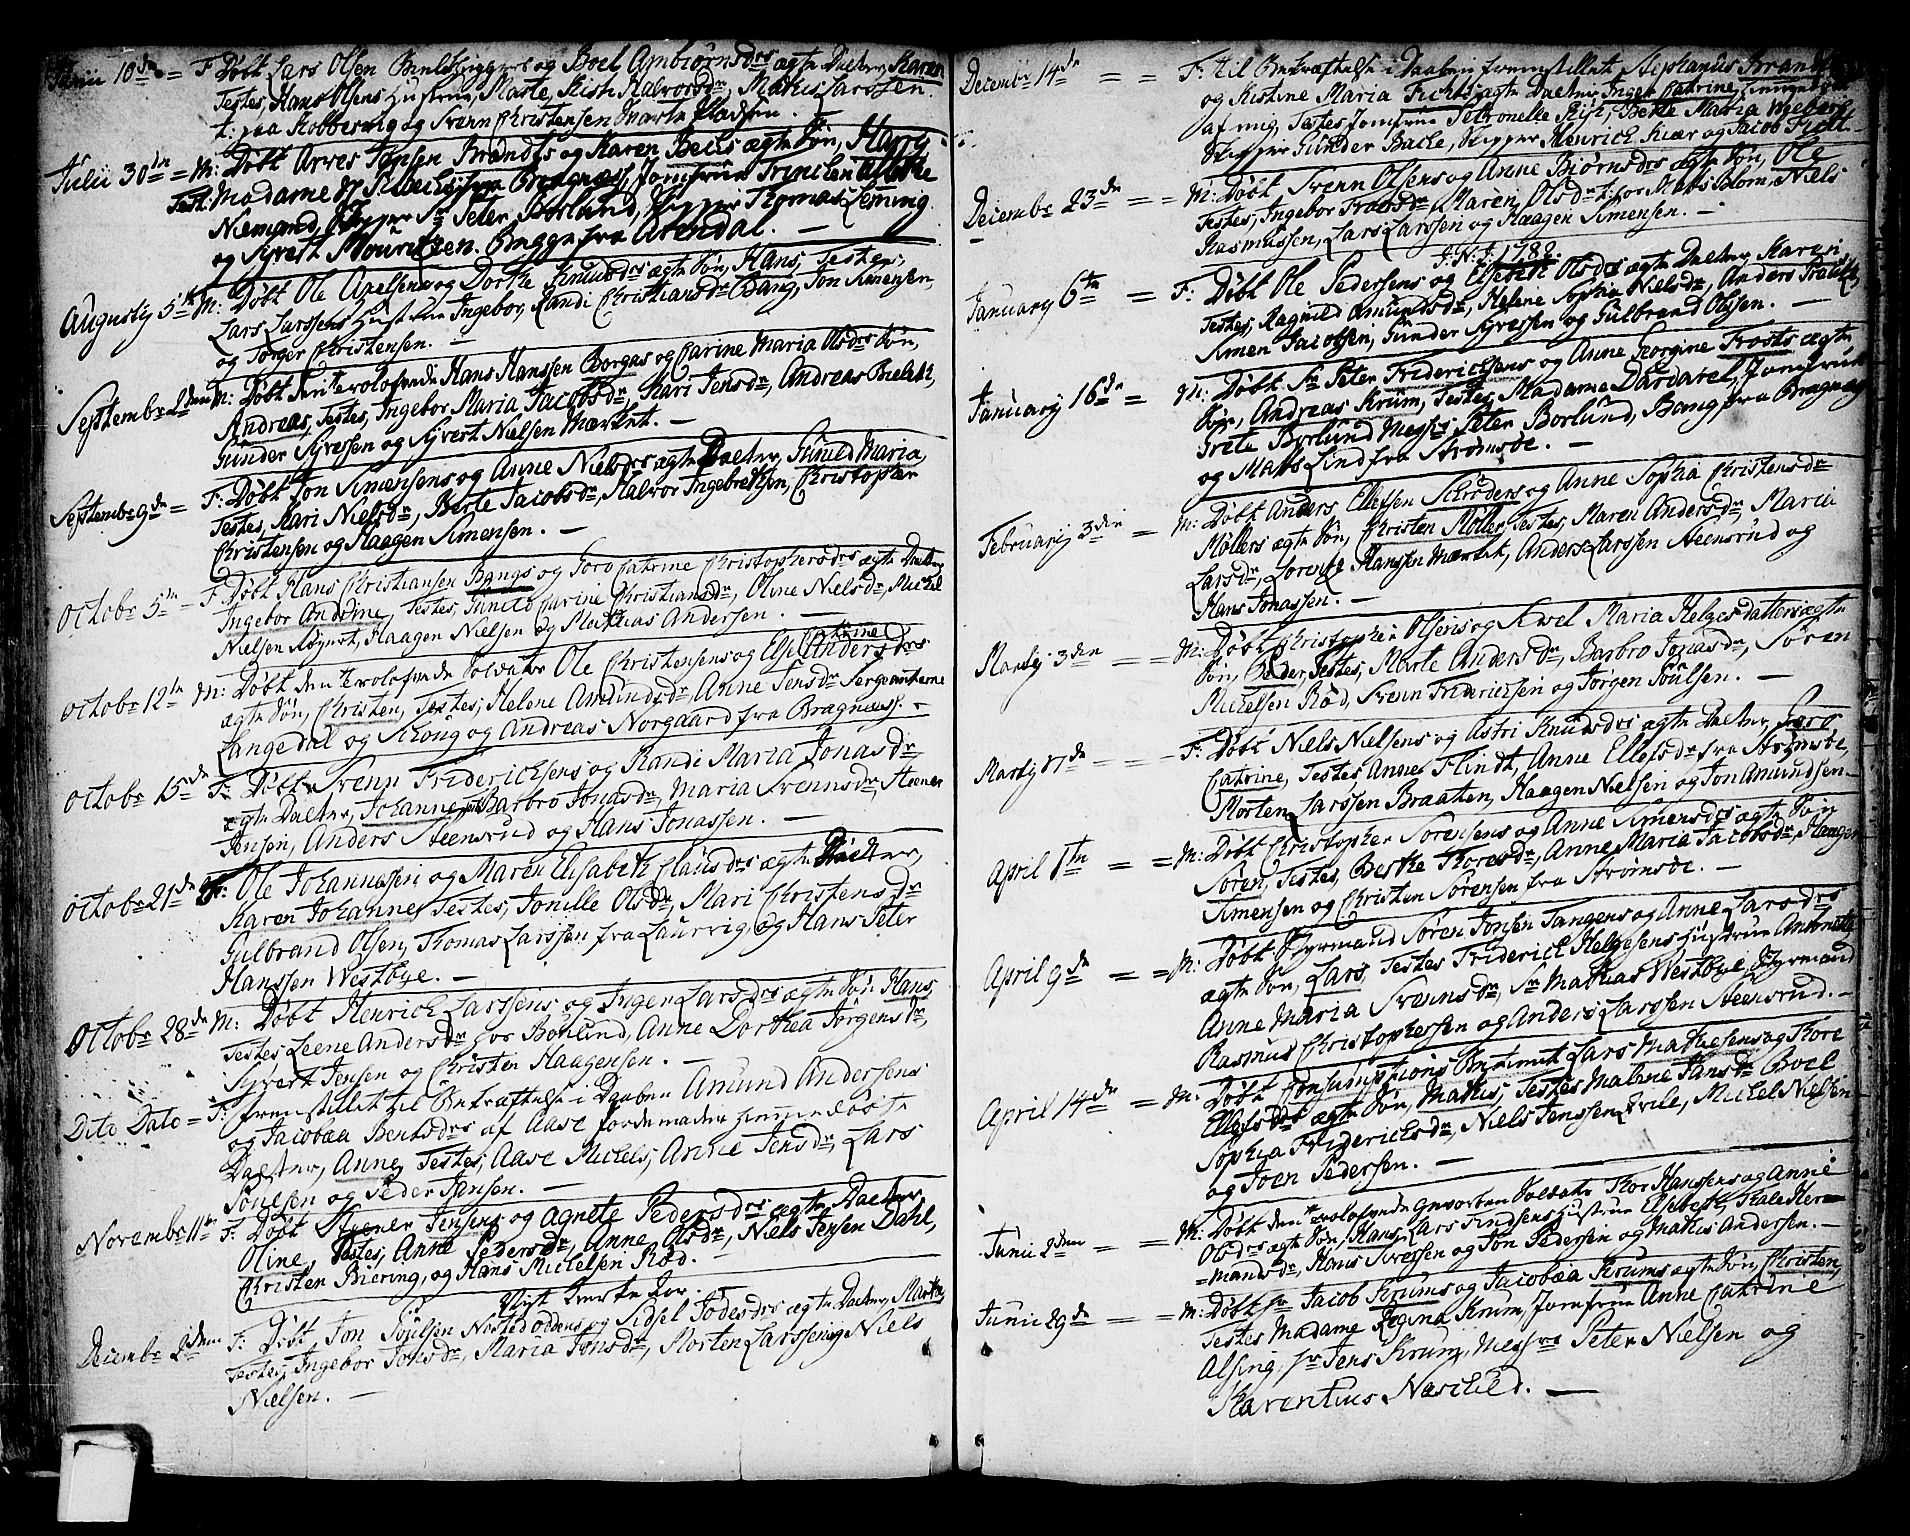 Junii 10de = F: Døbt Lars Olsen og Boel Ambiørnsdrs ægte Datter, Karen
Testes, Hans Olsens Hustrue, Marte, Kisti Halvorsdr, Mathis Larssen
t: paa Kobbervig og Svenn Christensen Pladsen. —
Julii 30te = M: Døbt Arves Jansen Brandts og Karen Beels ægte Søn, Harry
Test: Madame fra Bragnæss, Jomfrue Trinclen
Niemand, Skipper Sr Peter Borlund, Skipper Thomas Leming
og Syvert Mouritzen. Begge fra Arendal. —
Augustij 5te M: Døbt Ole Axelsens og Dorthe Knudsdrs ægte Søn, Hans, Testes,
Lars Larssens Hustrue Ingebor, Randi Christiansdr Bang, Jon Simensen,
og Jørger Christensen. —
Septembr 2den M: Døbt den Trolofvede Hans Hanssen Borgas og Carine Maria Olsdrs Søn,
Andreas, Testes, Ingebor Maria Jacobsdr, Kari Jensdr, Andreas
Gunder Syvessen og Syvert Nielsen Mærket. —
Septembr 9de = F: Døbt Jon Simensens og Anne Nielsdrs ægte Datter, Gunild Maria,
Testes, Kari Nielsdr, Berte Jacobsdr, Halvor Ingebretsen, Christopher
Christensen og Haagen Simensen. —
Octobr 5te = F: Døbt Hans Christiansen Bangs og Goro Catrine Christophersdrs ægte Datter
Ingebor Andrine, Testes, Gunild Carine Christiansdr, Oline Nielsdr, Michel
Nielsen Røgnst, Haagen Nielsen og Mathias Andersen. —
Octobr 12te M: Døbt den Trolofvede Soldat Ole Christensens og Else Catrine Andersdrs
ægte Søn, Christen, Testes, Helene Amundsdr, Anne Jensdr Sergeanterne
Langedal og Schong og Andreas Norgaard fra Bragnæss. —
Octobr 15de F: Døbt Svenn Friderichsens og Randi Maria Jonasdr
ægte Datter, Johanne, Test: Barbro Jonasdr, Maria Svennsdr, Steener
Jensen, Anders Steensrud og Hans Jonassen. —
Octobr 21de F: Ole Johannessen og Maren Elisabeth Clausdrs ægte Datter,
Karen Johanne, Testes, Jonille Olsdr, Mari Christensdr
Gulbrand Olsen, Thomas Larssen fra Laurvig, og Hans Peter
Hanssen Westbye. —
Octobr 28de M: Døbt Henrich Larssens og Inger Larsdrs ægte Søn Hans,
Testes Leene Andersdr hos Borlund, Anne Dorthea Jørgensdr,
Syvert Jensen og Christen Haagensen. —
Dito Dato = F: fremstillet til Bekræftelse i Daaben Amund Andersens
og Jacobaa Bentsdrs af Aase Jordemoder hjemmedøbte
Datter, Anne, Testes, Aase Michels, Anne Jensdr, Lars
Poulsen og Peder Jansen. —
Novembr 11te F: Døbt Steener Jensens og Agnete Pedersdrs ægte Datter
Oline, Testes, Anne Pedersdr, Anne Olsdr, Niels Jensen Dahl,
Christen Biering, og Hans Michelsen Rød.
Nyt Kirke Aar.
Decembr 2den F: Døbt Jon Poulsen Nostedoddens og Sidsel Jodesdrs ægte Datter, Marte,
Testes, Ingebor Jonsdr, Maria Jonsdr, Morten Larssen og Niels
Nielsen. —
Decembr 14de = = F: til Bekræftelse i Daaben fremstillet Stephanus Brandts
og Kistine Maria Fichts ægte Datter Inger Catrine, hjemmedøbt
af mig, Testes Jomfrue Petronelle Kisé, Berthe Maria Ingeborg
Skipper Gunder Bache, Skipper Henrich Kiær og Jacob
Decembr 23de = = M: Døbt Svenn Olsens og Anne Biørnsdrs ægte Søn, Ole
Testes, Ingebor Maren Olsdr t: for Mads Blom, Niels
Rasmussen, Lars Larssen og Haagen Simensen. —
J: N: J: 1782.
Januarij 6te = F: Døbt Ole Pedersens og Elsebeth Olsdrs ægte Datter, Karen
Testes, Ragnild Amundsdr, Helene Sophia Nielsdr, Anders
Simen Jacobsen, Gunder Syvessen og Gulbrand Olsen. —
Januarij 16de = M: Døbt Sr Peter Friderichsens og Anne Georgine Frosts ægte
Søn, Andreas Krum, Testes, Madame Dardarel, Jomfrue
Grete Borlund Messrs Peter Borlund, Bang fra Bragnæs
og Mads Lind fra Strømsøe. —
Februarij 3die = M: Døbt Anders Ellefsen Schrøders og Anne Sophia Christensdr
Møllers ægte Søn, Christen Møller, Testes, Maren Andersdr, Maria
Larsdr, Lorentz Hanssen Mærket, Anders Larssen Steensrud og
Hans Jonassen. —
Martij 3die = = M: Døbt Christopher Olsens og Sivel Maria Helgesdatters ægte
Søn, Peder, Testes, Marte Andersdr, Barbro Jonasdr, Søren
Michelsen Rød, Svenn Friderichsen og Jørgen Poulsen. —
Martij 17de — — F: Døbt Niels Nielsens og Astri Knudsdrs ægte Datter, Goro
Catrine, Testes Anne Flindt, Anne Ellefsdr fra Strømsøe,
Morten Larssen Braaten, Haagen Nielsen og Jon Amundsen.
April 1te = = M: Døbt Christopher Sørensens og Anne Simensdrs ægte Søn
Søren, Testes, Berthe Thoresdr, Anne Maria Jacobsdr, Haagen
Simensen og Christen Sørensen fra Strømsøe. —
April 9de = = M: Døbt Styrmand Søren Jonsen Tangens og Anne Larsdrs
ægte Søn, Lars, Testes Friderich Helgesens Hustrue Antonette
Anne Maria Svennsdr, Sr Mathias Westbye, Styrmand
Rasmus Christophersen og Anders Larssen Steensrud. —
April 14de = M: Døbt Consumptions Betient Lars Mathesens og Thore
Ellefsdrs ægte Søn, Mathis, Testes Malene Jansdr Boel
Sophia Friderichsdr, Niels Jenssen Qvile, Michel Nielsen
og Joen Pedersen. —
Junii 2den = M: Døbt den Trolofvede Gevorben Soldat Thor Hanssens og Anne
Olsdrs ægte Søn, Hans, Lars Hustrue Elsebeth, Kale Her-
=mandsdr, Hans Svessen og Jon Pedersen og Mathis Andersen. —
Junii 29de = = M: Døbt Sr Jacob Krums og Jacobæa Krums ægte Søn, Christen,
Testes Madame Regina Krum, Jomfrue Anne Catrine
Alsing, Sr Jens Krum, Messrs Peter Nielsen og
Florentius Naschild. —